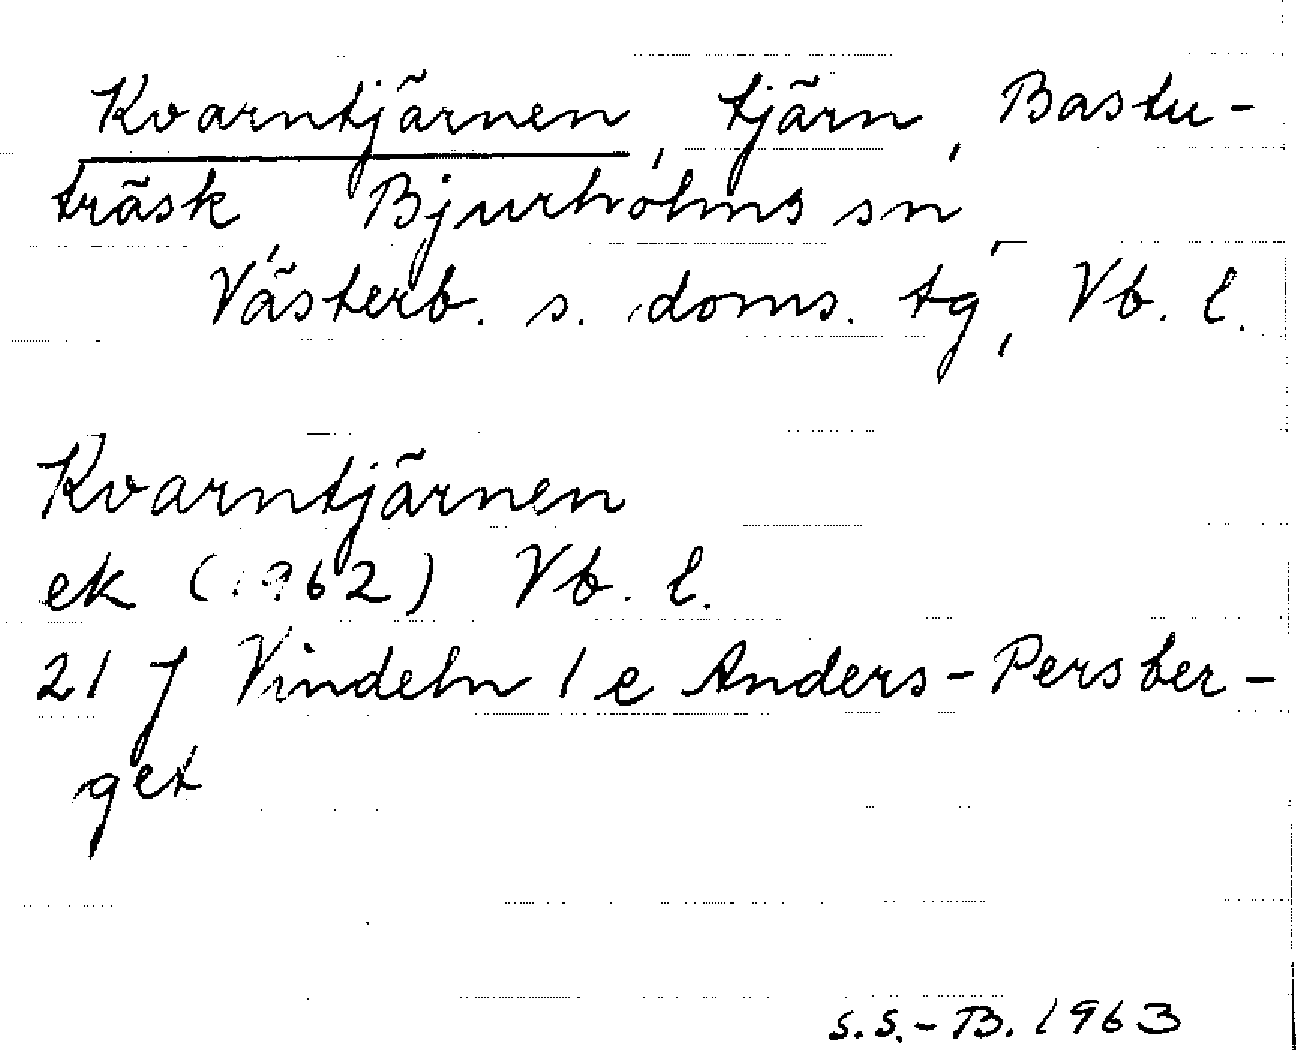 Kvarntjärnen, tjärn, Bastu-
träsk, Bjurholms sn,
Västerb. s. doms. tg, Vb. l.
Kvarntjärnen
ek (1962) Vb. l.
21 J Vindeln 1 e Anders-Persber-
get
S.S.-B. 1963